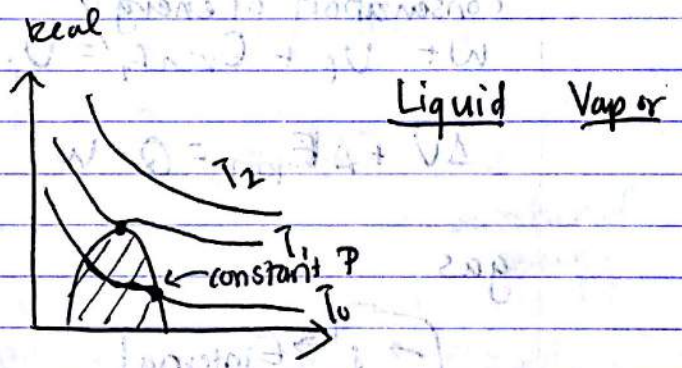 Real
Liquid Vapor
T2
T1
constant P
T0